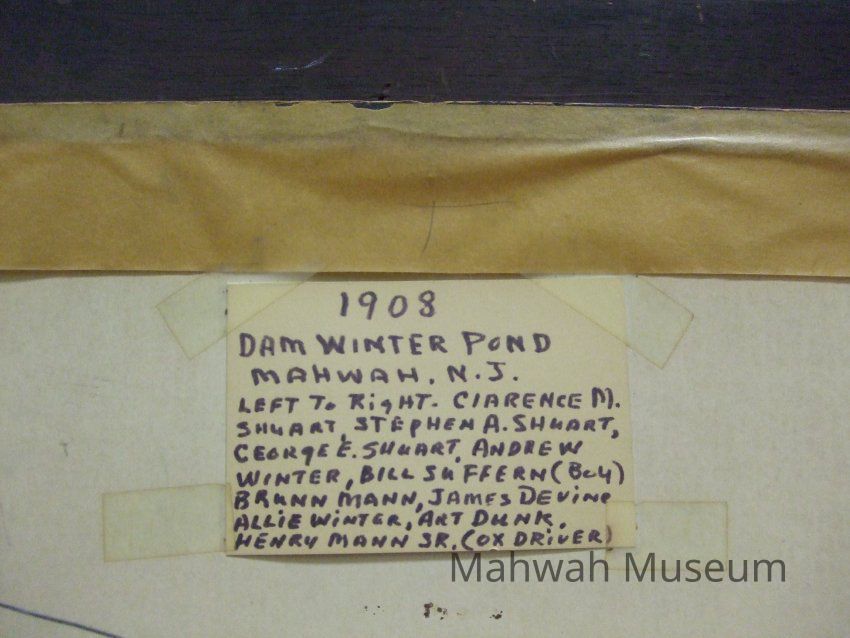 1908
DAM WINTER POND
MAHWAH, N.J.
LEFT To RigHT- CLARENCE M.
SHUART, STEPHEN A. SHUART,
GEORGE E. SHUART, ANDREW
WINTER, BILL SUFFERN (Boy)
BRUNN MANN, JAMES DEVINE
ALLIE WINTER, ART DUNK,
HENRY MANN SR. (OX DRIVER)
Mahwah Museum